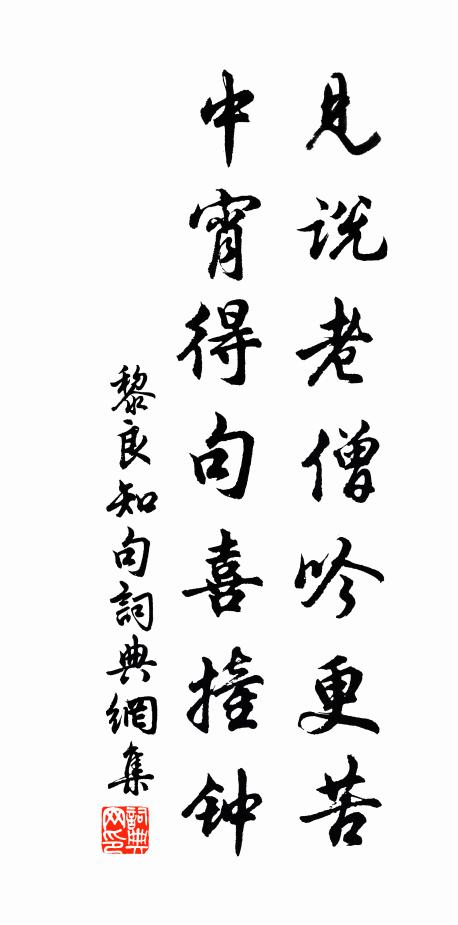 见说老僧吟更苦
中宵得句喜撞钟
黎良知句詞典網集
詞典网印